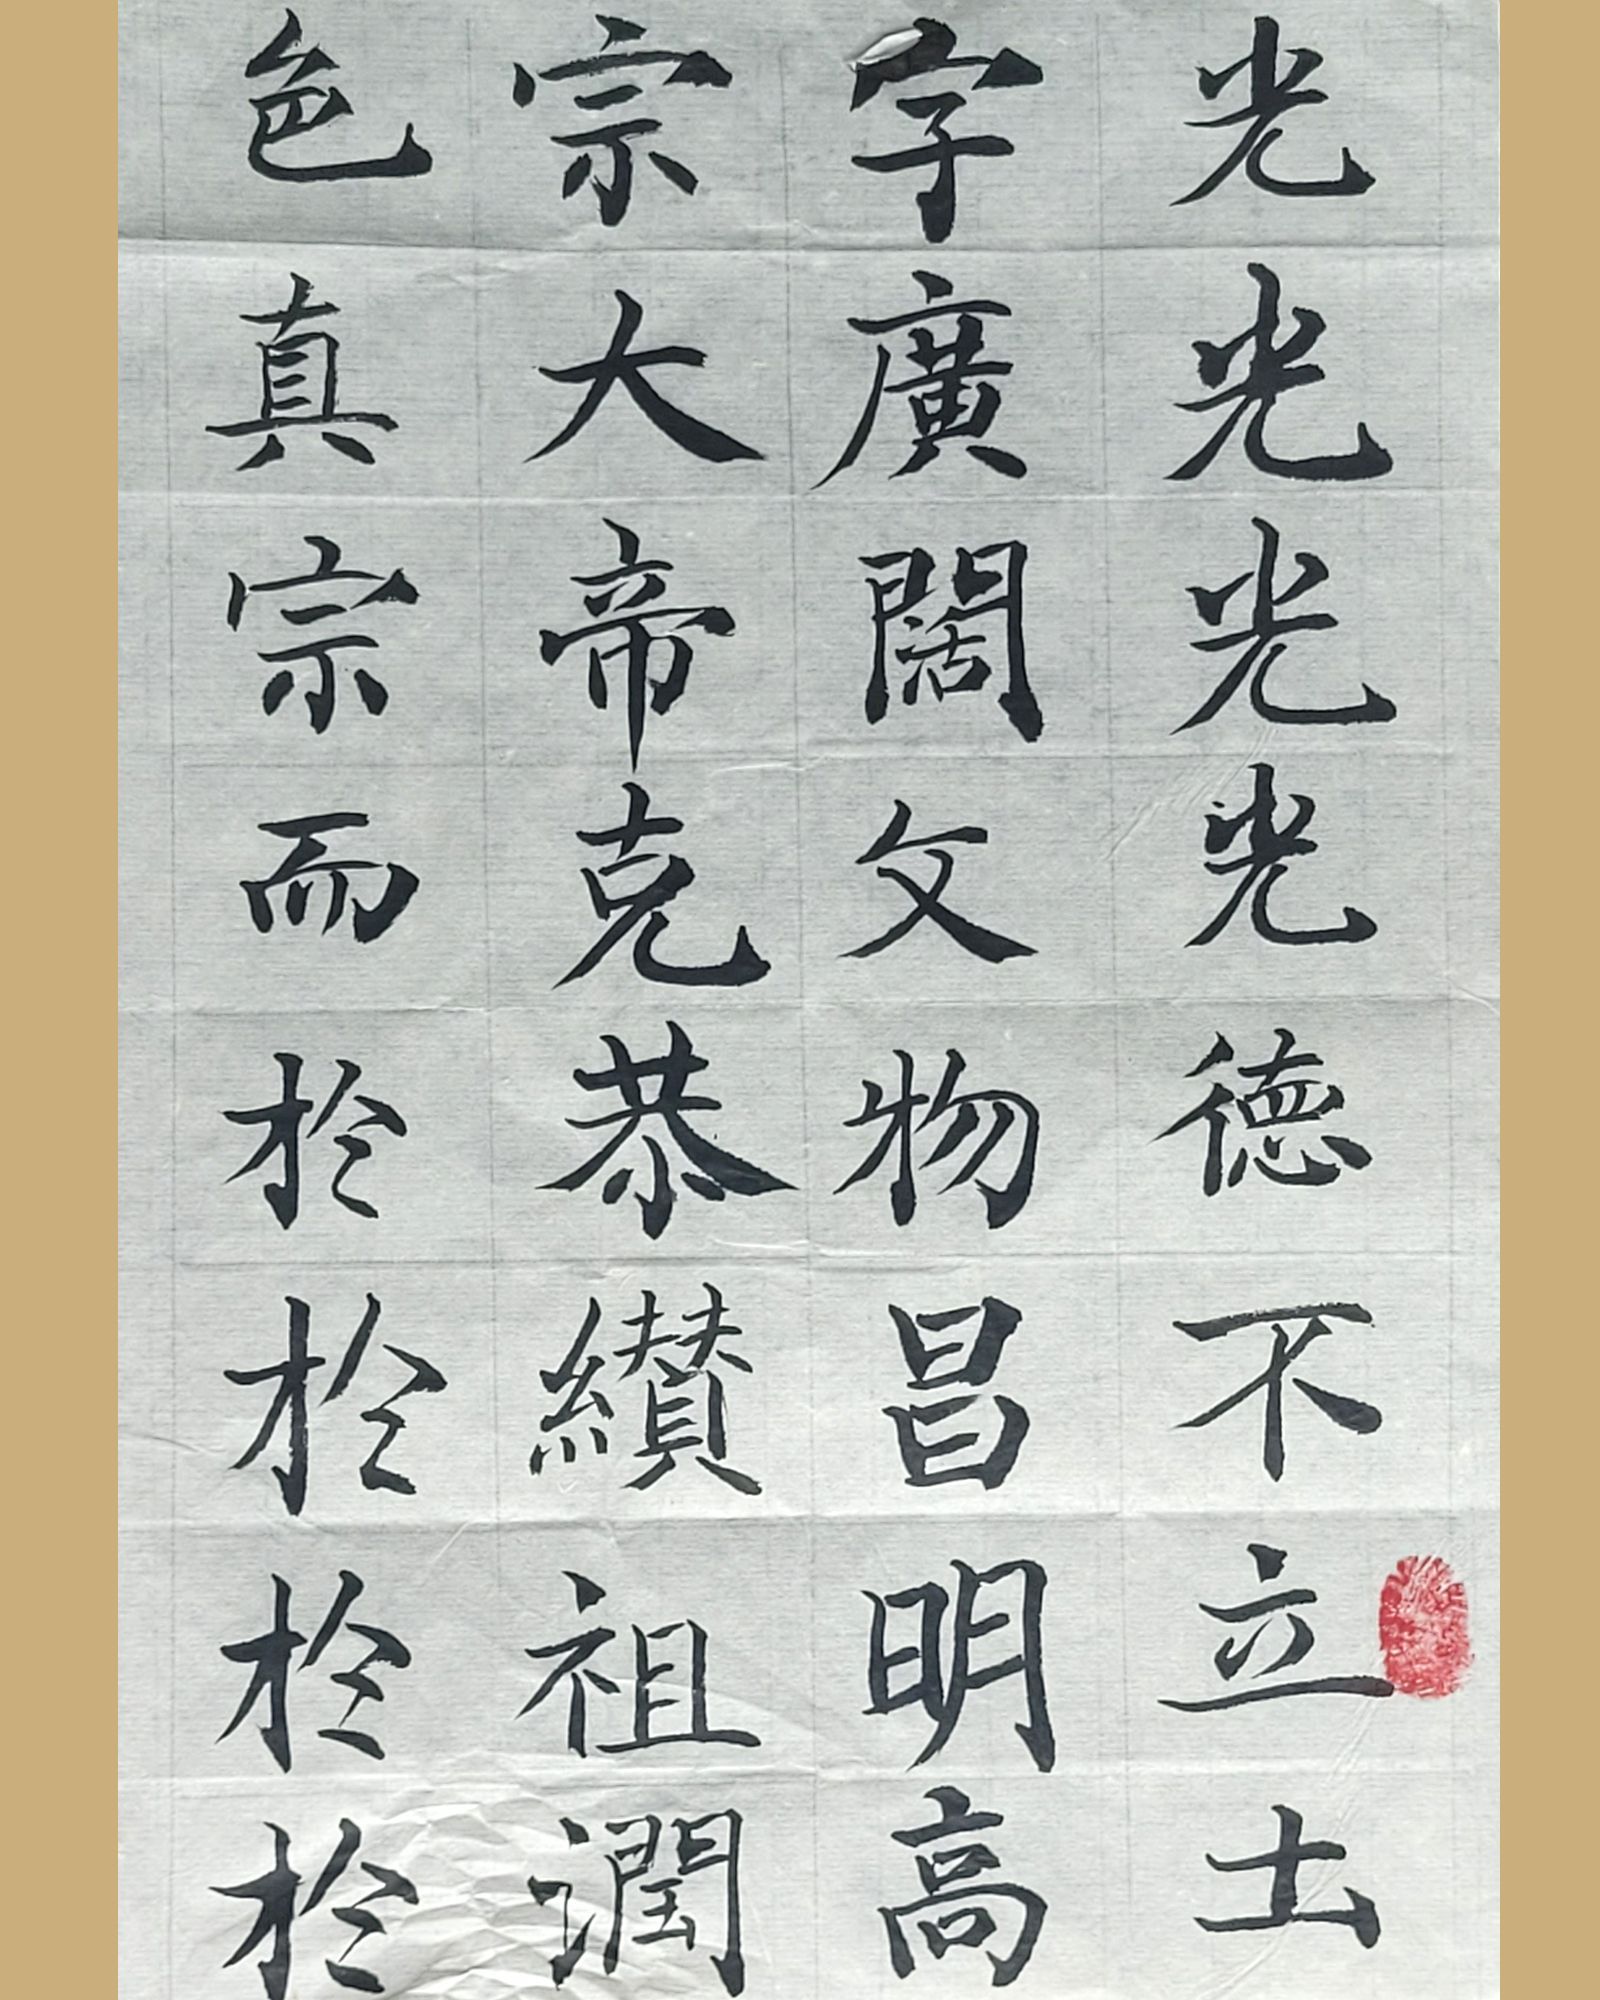 光光光光德不立土
字廣闊文物昌明高
宗大帝克恭纘祖潤
色真宗而於於於於